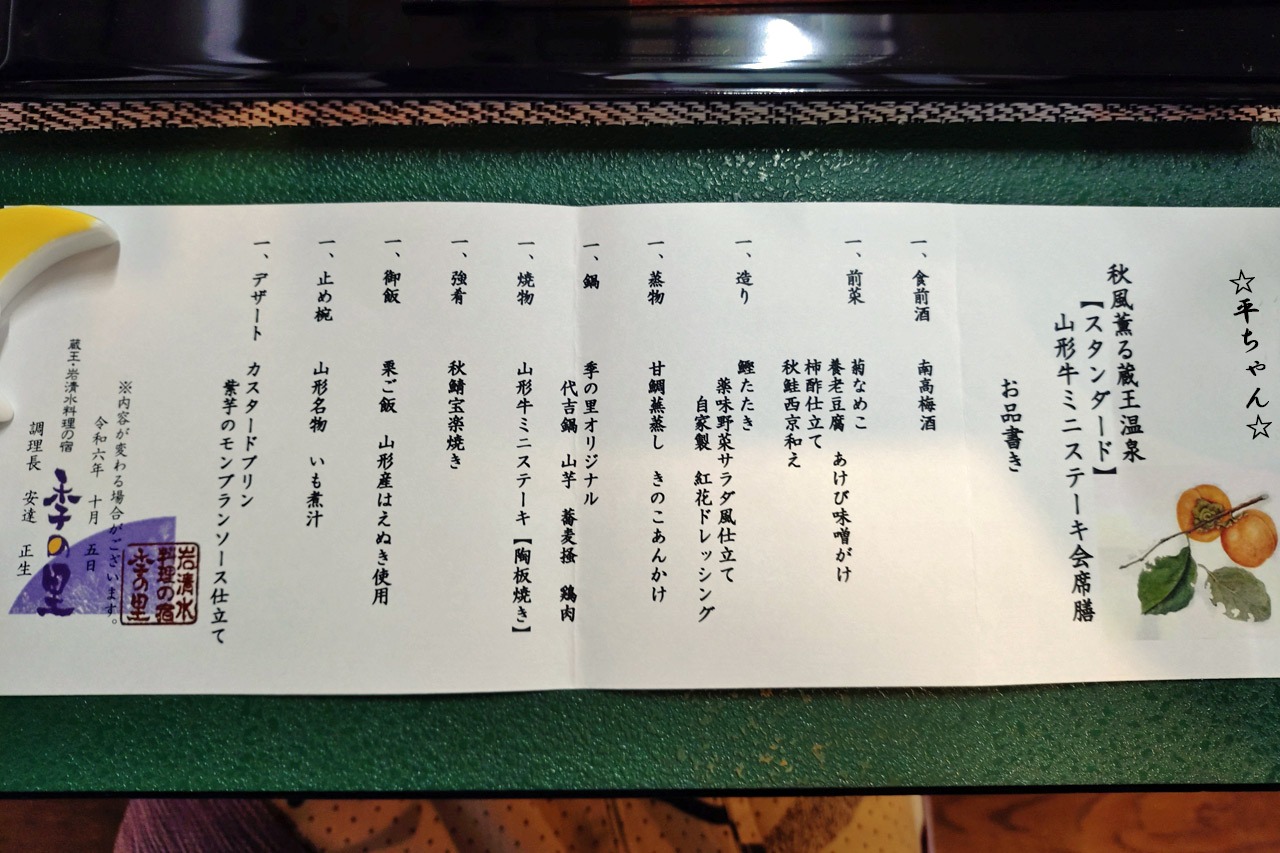 ☆平ちゃん☆
秋風薫る蔵王温泉
【スタンダード】
山形牛ミニステーキ会席膳
お品書き
一、食前酒　南高梅酒
一、前菜　菊なめこ
養老豆腐　あけび味噌がけ
柿酢仕立て
秋鮭西京和え
一、造り　鰹たたき
薬味野菜サラダ風仕立て
自家製　紅花ドレッシング
一、蒸物　甘鯛蕪蒸し　きのこあんかけ
一、鍋　季の里オリジナル
代吉鍋　山芋　蕎麦掻　鶏肉
一、焼物　山形牛ミニステーキ【陶板焼き】
一、強肴　秋鯖宝楽焼き
一、御飯　栗ご飯　山形産はえぬき使用
一、止め椀　山形名物　いも煮汁
一、デザート　カスタードプリン
紫芋のモンブランソース仕立て
岩清水
料理の宿
季の里
※内容が変わる場合がございます。
令和六年　十月　五日
蔵王・岩清水料理の宿
季の里
調理長　安達　正生